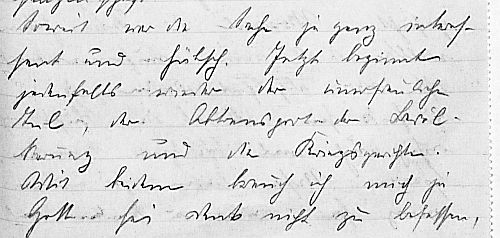 Soweit war die Sache ja ganz interes-
sant und hübsch. Jetzt beginnt
jedenfalls wieder der unerfreuliche
Teil, der Abtransport der Bevöl-
kerung und die Kriegsgerichte.
Mit beidem brauch ich mich ja
Gott sei dank nicht zu befassen,